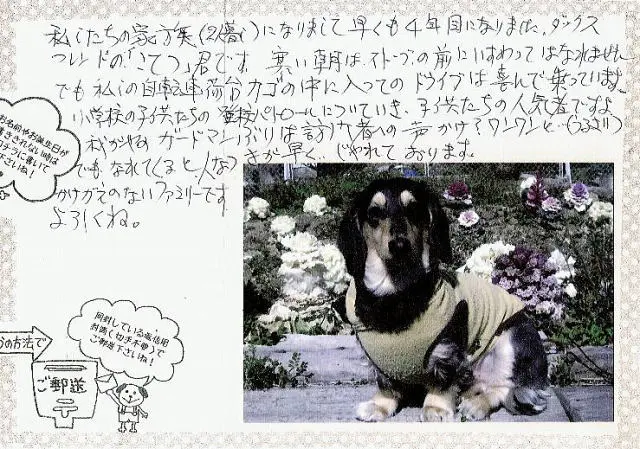 私したちの家族(2人暮し)になりまして早くも4年目になりました。ダックス
フレンドの「こてつ」君です。寒い朝はストーブの前にいすわってはなれません
でも私しの自転車荷台カゴの中に入ってのドライブは喜んで乗っています。
小学校の子供たちの登校パトロールについていき、子供たちの人気者ですよ
わがやの ガードマンぶりは訪力者への声かけ?ワンワンと(うるさい)
でも、なれてくると人な
さが早く、じゃれております。
かけがえのないファミリーです
よろしくね。
お名前やお誕生日が
書ききれない時は
に書いて
下さいね!
同封している返信用
封筒(切手不要)で
ご郵送下さいね!
の方法で
ご郵送